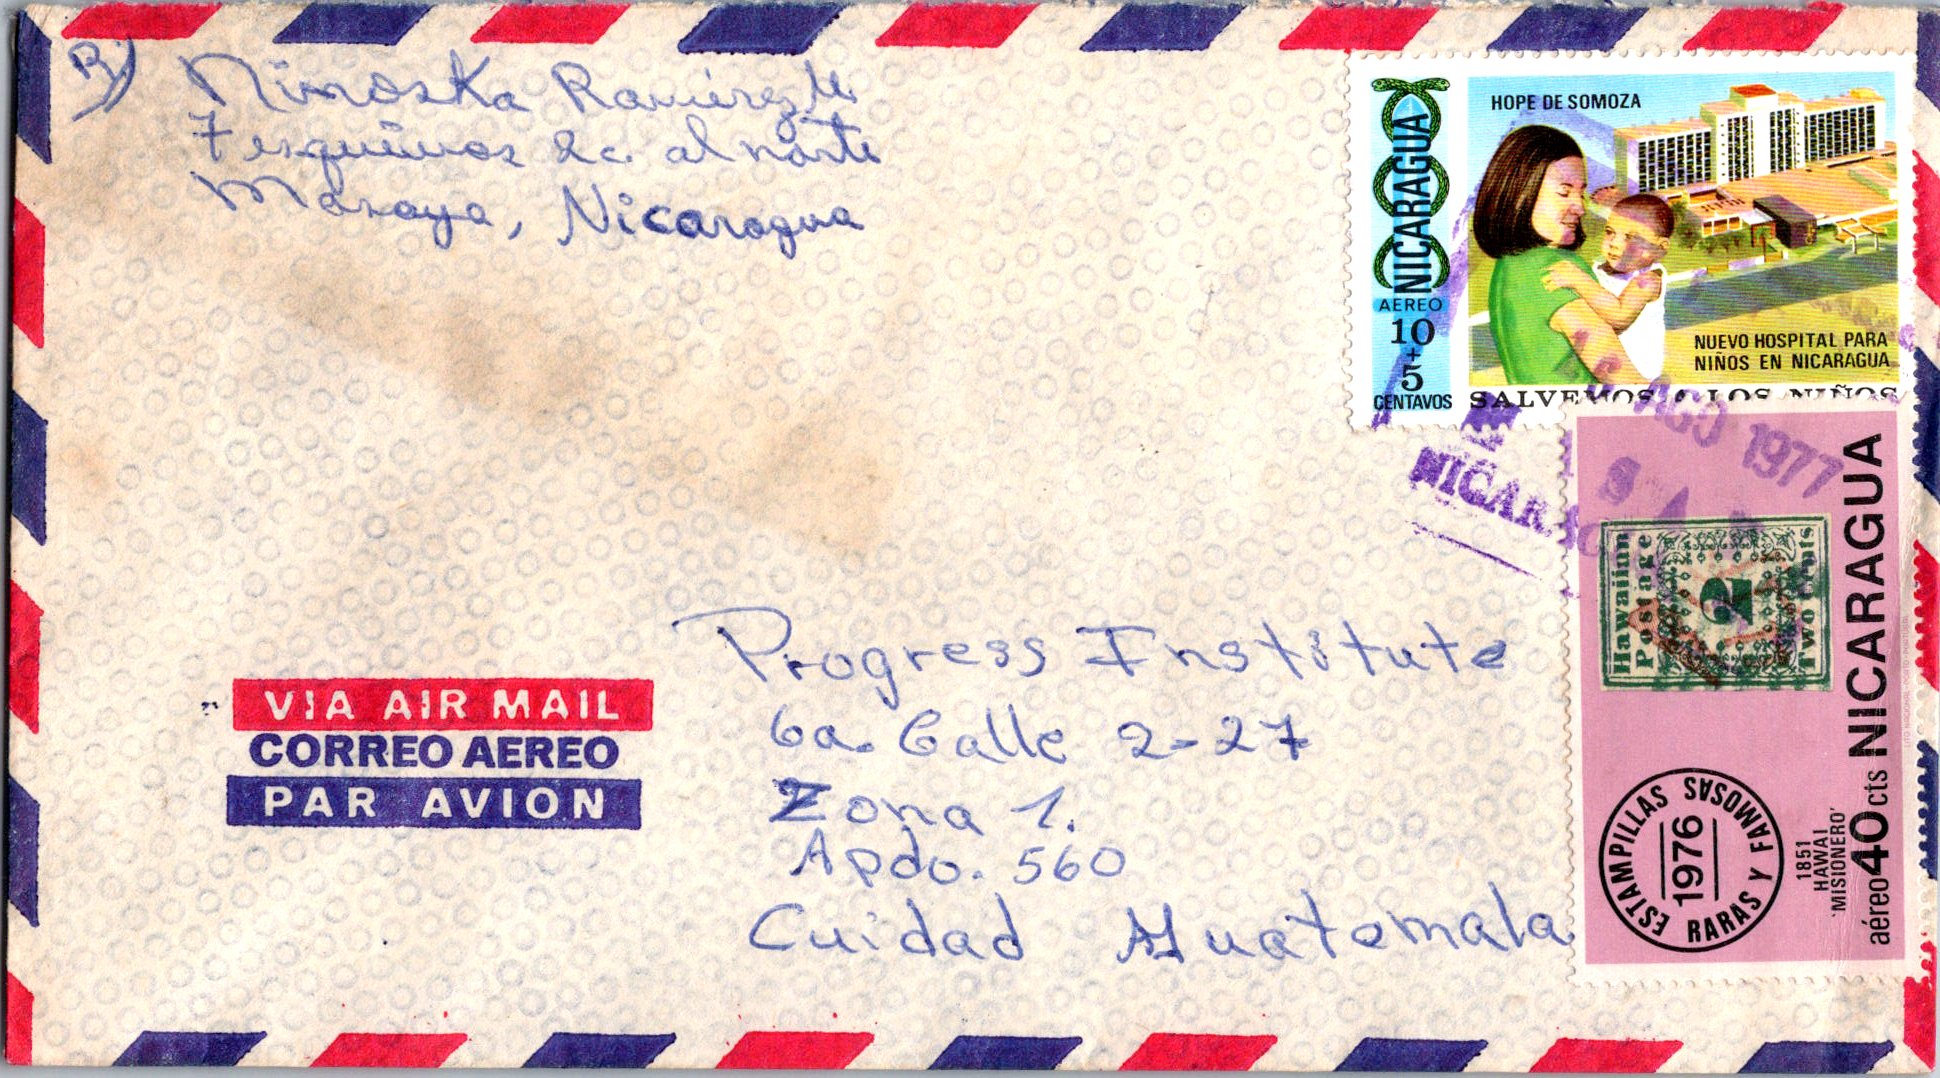 R)
Ninoska Ramírez M
7 esquinas 2c. al norte
Masaya, Nicaragua
HOPE DE SOMOZA
NICARAGUA
AEREO
10
+
5
CENTAVOS
NUEVO HOSPITAL PARA
NIÑOS EN NICARAGUA
SALVEMOS A LOS NIÑOS
AGO 1977
NICARAG
Hawaiian
Postage
2
Two Cents
NICARAGUA
aéreo 40 cts
1851
HAWAI
'MISIONERO'
ESTAMPILLAS RARAS Y FAMOSAS
1976
VIA AIR MAIL
CORREO AEREO
PAR AVION
Progress Institute
6a. Calle 2-27
Zona 1.
Apdo. 560
Cuidad Guatemala